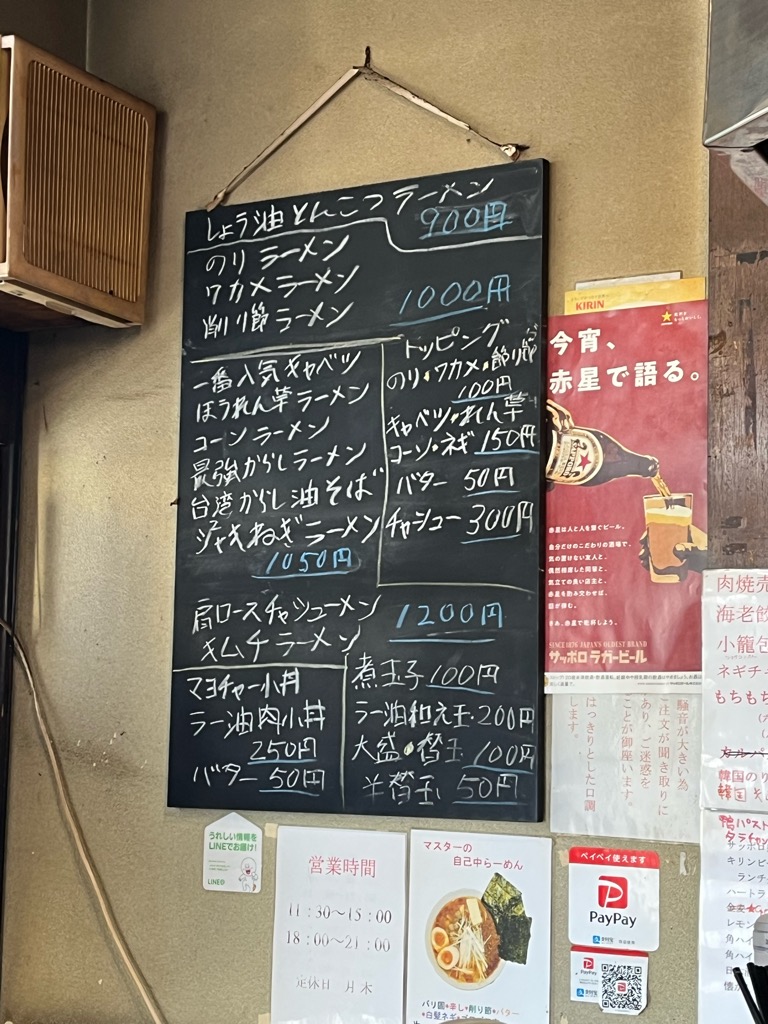 しょう油とんこつラーメン
900円
のりラーメン
ワカメラーメン
削り節ラーメン
1000円
一番人気キャベツ
ほうれん草ラーメン
コーンラーメン
最強がらしラーメン
台湾がらし油そば
シャキねぎラーメン
1050円
トッピング
のり・ワカメ・節
100円
キャベツ・
コーン・ネギ 150円
バター 50円
チャシュー 300円
肩ロースチャシューメン
キムチラーメン
1200円
マヨチャー小丼
ラー油肉小丼
250円
バター 50円
煮玉子 100円
ラー油和え玉・200円
大盛・替玉 100円
半替玉 50円
KIRIN
今宵、
赤星で語る。
赤星は人と人を繋ぐビール。
自分だけのこだわりの酒場で、
気の置けない友人と、
偶然相席した同客と、
気立ての良い店主と、
赤星を酌み交わせば、
話が弾む。
さあ、赤星で乾杯しよう。
SINCE 1876 JAPAN'S OLDEST BRAND
サッポロラガービール
騒音が大きい為
ご注文が聞き取りに
あり、ご迷惑を
ことが御座います。
はっきりとした口調
します。
肉焼売
海老餃
小籠包
ネギチ
もちもち
カルパ
韓国のり
韓国
鴨パスト
タラチャ
サッポロ
キリンビー
ランチ
ハートラ
レモン
角ハイ
角ハイ
うれしい情報を
LINEでお届け!
LINE@
営業時間
11:30～15:00
18:00～21:00
定休日 月 木
マスターの
自己中らーめん
バリ固・辛し・削り節・バター
・白髪ネギ・
ペイペイ使えます
PayPay
PayPay